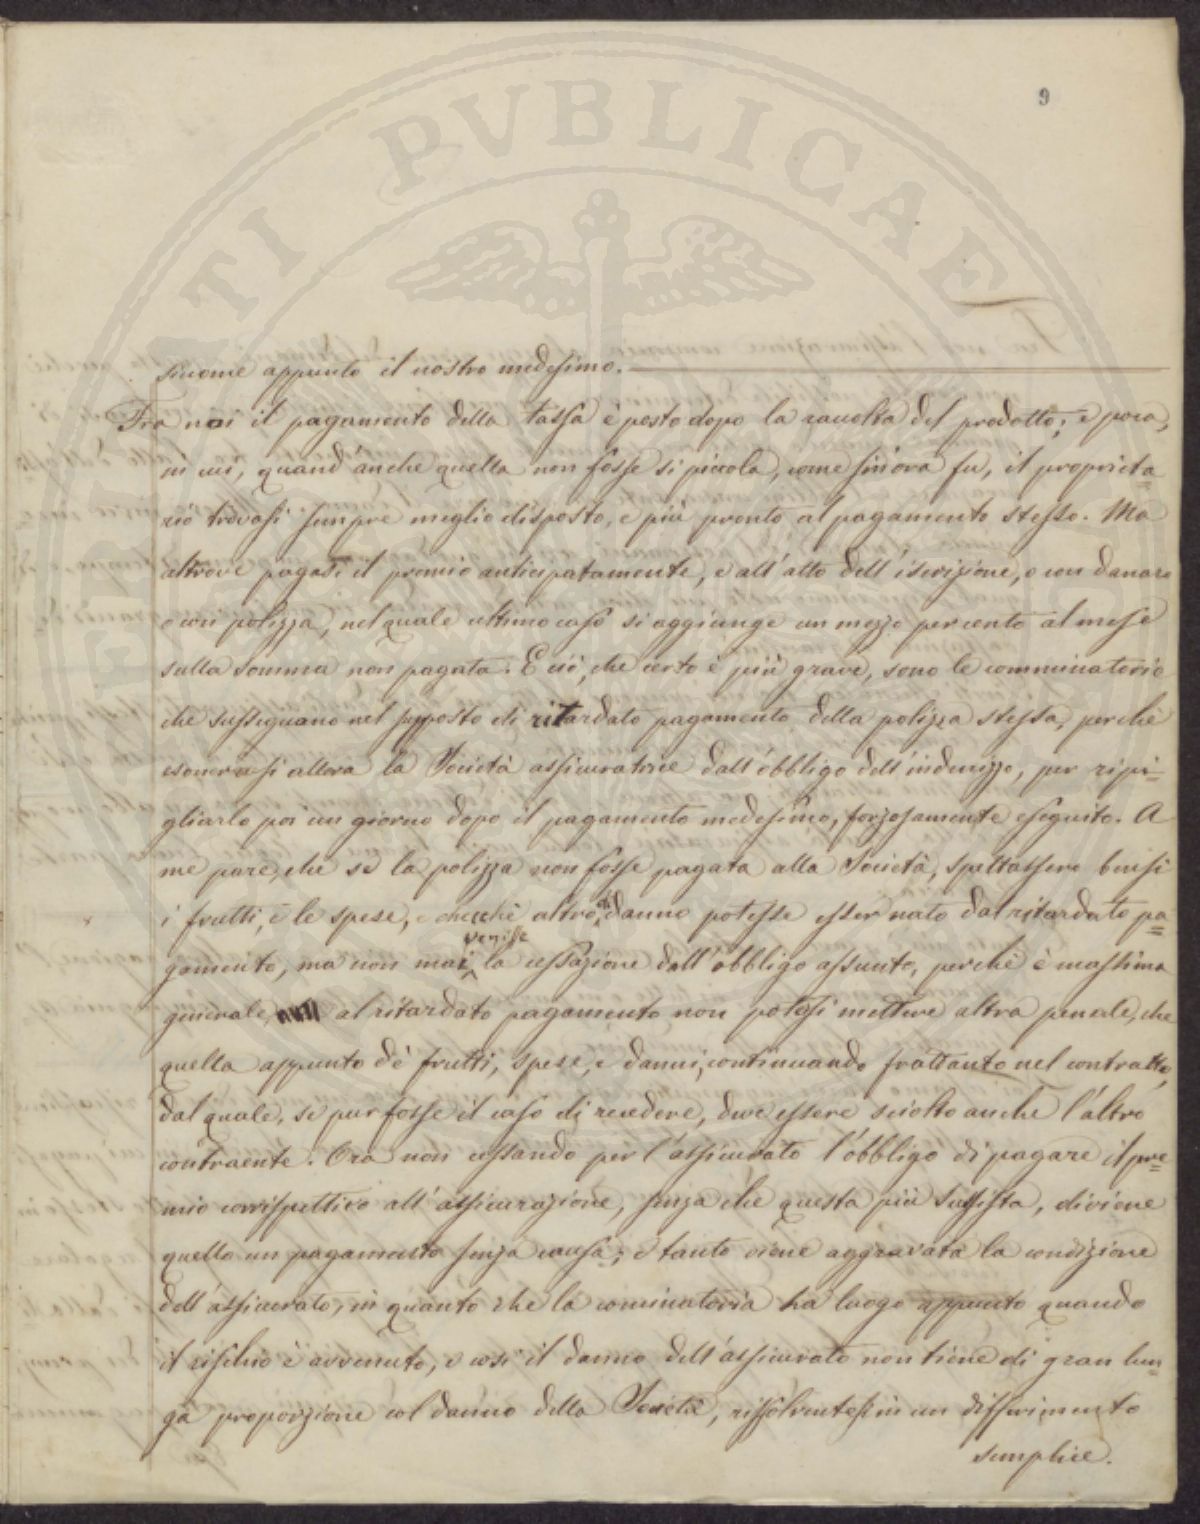 9
siccome appunto il nostro medesimo.
Tra noi il pagamento della tassa è posto dopo la raccolta del prodotto; epoca,
in cui, quand'anche quella non fosse sì piccola, come sin'ora fu, il proprieta
rio trovasi sempre meglio disposto, e più pronto al pagamento stesso. Ma
altrove pagasi il premio anticipatamente, e all'atto dell'iscrizione, o con danaro
o con polizza, nel quale ultimo caso si aggiunge un mezzo per cento al mese
sulla somma non pagata. E ciò, che certo è più grave, sono le comminatorie
che susseguano nel supposto di ritardato pagamento della polizza stessa, perchè
esonerasi allora la Società assicuratrice dall'obbligo dell'indenizzo, per ripi=
gliarlo poi un giorno dopo il pagamento medesimo, forzosamente eseguito. A
me pare, che se la polizza non fosse pagata alla Società, spettassero bensì
i frutti, e le spese, e checchè altro di danno potesse esser nato dal ritardato pa=
venisse
gamento, ma non mai la cessazione dall'obbligo assunto, perchè è massima
generale, al ritardato pagamento non potersi mettere altra penale, che
quella appunto de' frutti, spese, e danni, continuando frattanto nel contratto,
dal quale, se pur fosse il caso di recedere, deve essere sciolto anche l'altro
contraente. Ora non cessando per l'assicurato l'obbligo di pagare il pre=
mio corrispettivo all'assicurazione, senza che questa più sussista, diviene
quello un pagamento senza causa; e tanto viene aggravata la condizione
dell'assicurato, in quanto che la cominatoria ha luogo appunto quando
il rischio è avvenuto, e così il danno dell'assicurato non tiene di gran lun=
ga proporzione col danno della Società, rissolventesi in un differimento
semplice.